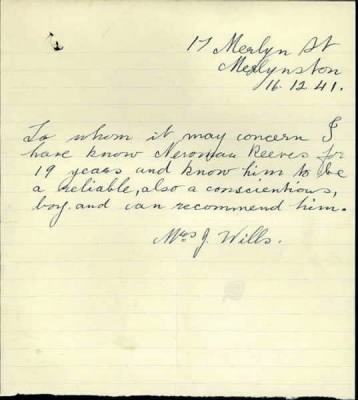 17 Merlyn St
Merlynston
16.12.41.
To whom it may concern I
have know Neroman Reeves for
19 years and know him to be
a reliable, also a conscientious,
boy. and can recommend him.
Mrs J. Wills.